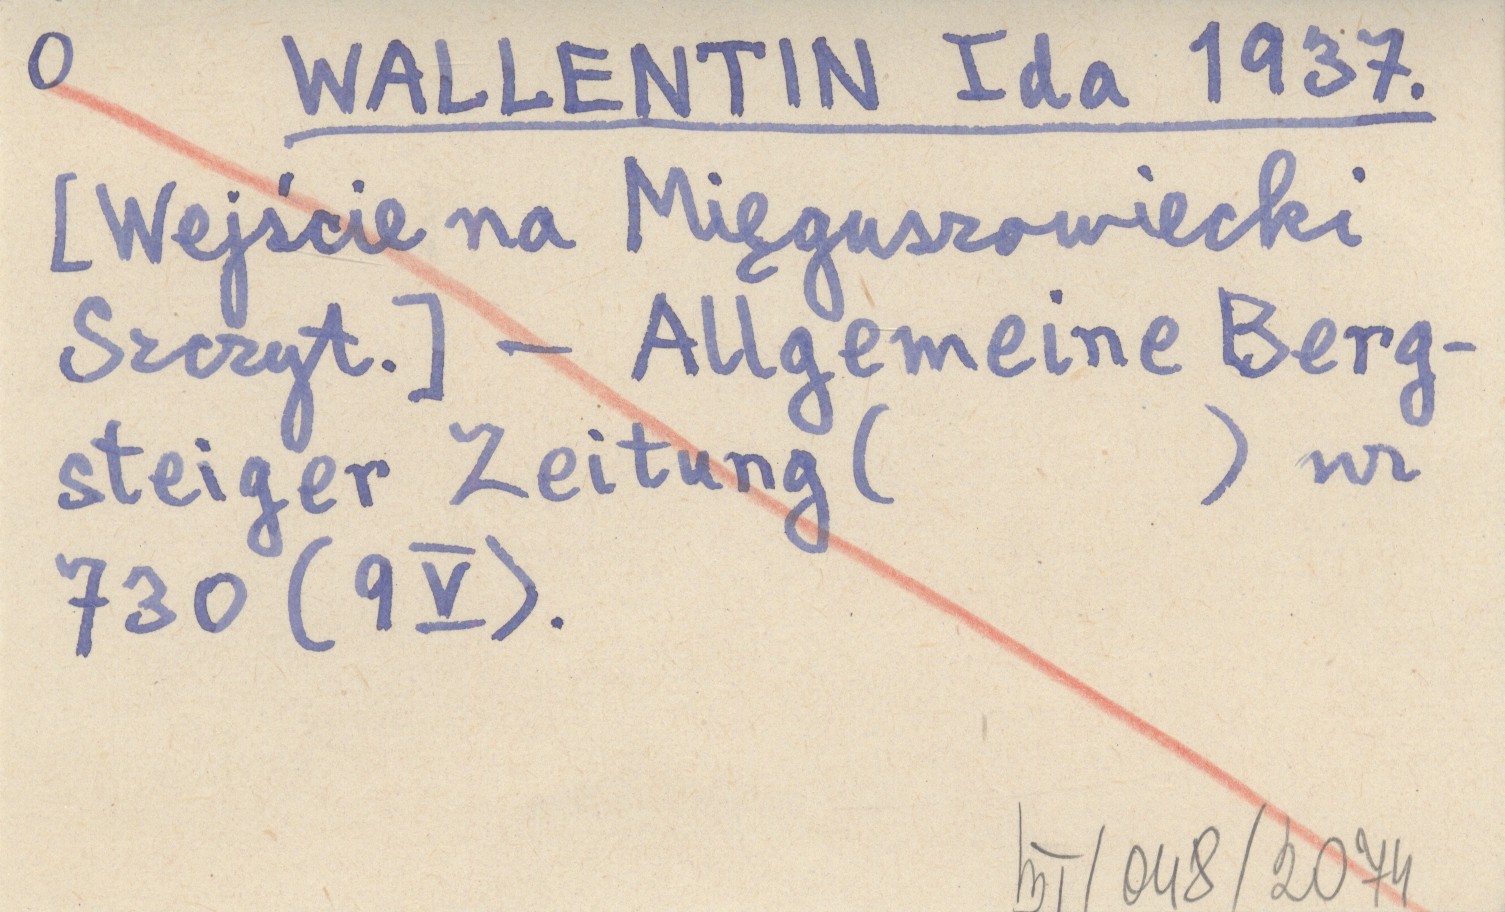 O WALLENTIN Ida 1937.
[Wejście na Mięguszowiecki
Szczyt.] — Allgemeine Berg-
steiger Zeitung ( ) nr
730 (9 V).
/048/2074